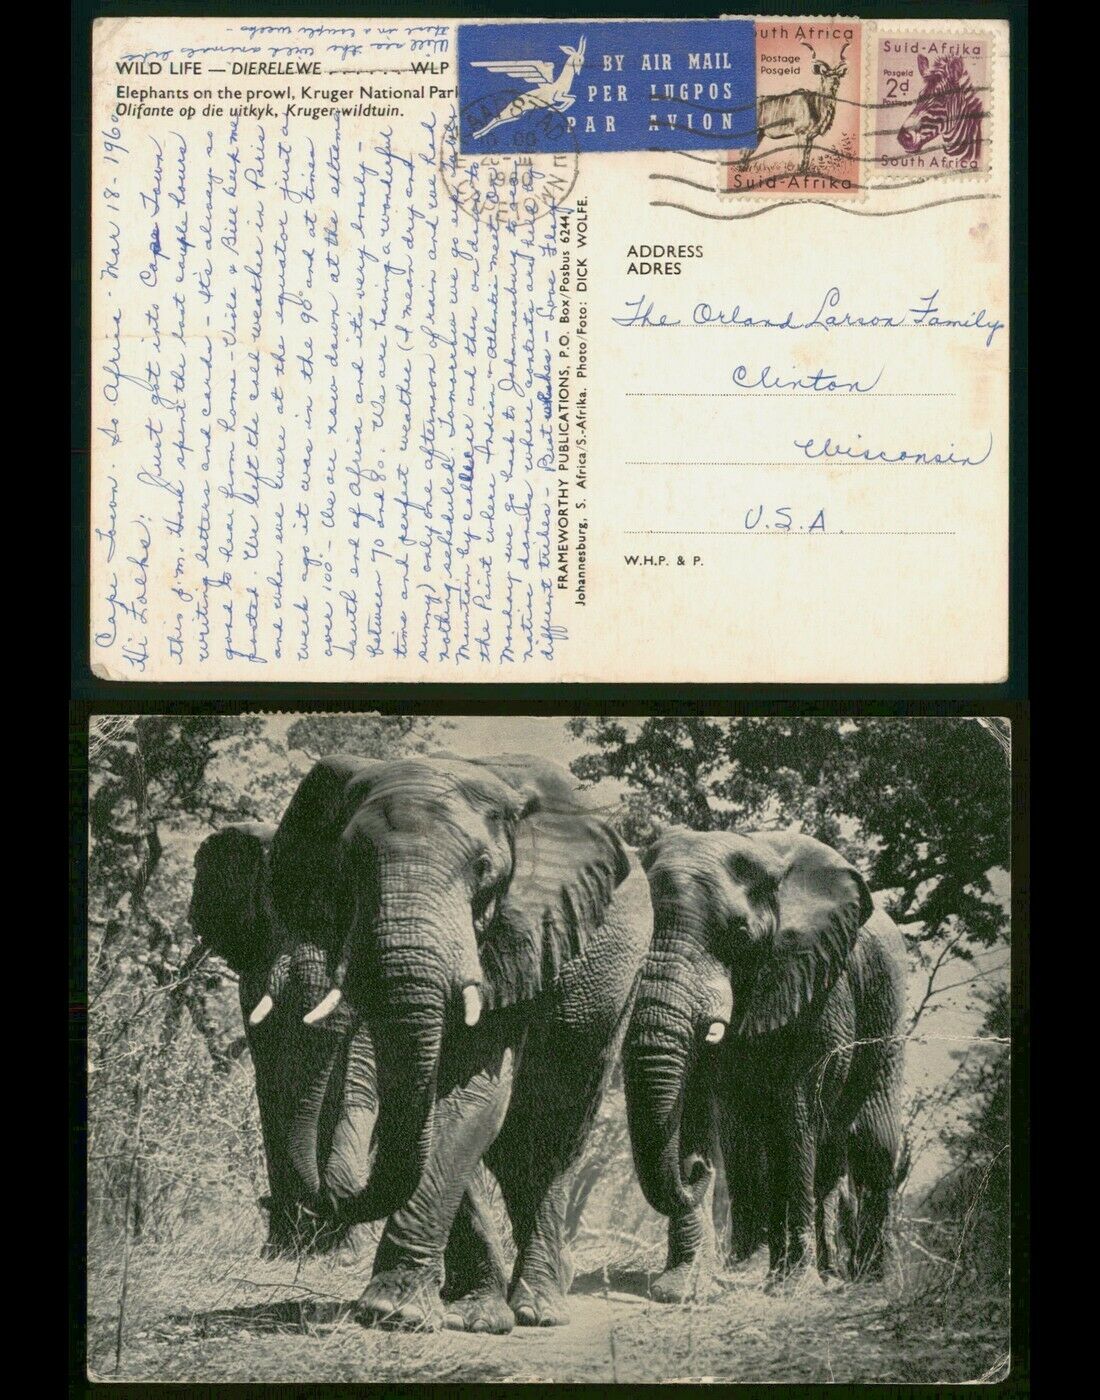 WILD LIFE — DIERELEWE WLP
Elephants on the prowl, Kruger National Park
Olifante op die uitkyk, Kruger-wildtuin.
BY AIR MAIL
PER LUGPOS
PAR AVION
South Africa
Postage
Posgeld
Suid-Afrika
Suid-Afrika
Posgeld
2d
South Africa
Cape Town. So Africa - Mar 18 - 1960
Hi Folks: Just got into Cape Town
this p.m. Have spent the last couple hours
writing letters and cards - It's always so
good to hear from home - Vista & Bill keep me
posted. We left the cold weather in Paris
and when we were at the equator just a
week ago it was in the 90s and at times
over 100 - We are now down at the extreme
South end of Africa and it's very lovely -
between 70 and 80. We are having a wonderful
time and perfect weather (I mean dry and
sunny) only one afternoon of rain and we had
nothing scheduled. Tomorrow we go up
Mountain by cable car and then on down to
the Point where Indian & Atlantic meet and
Monday we go back to Johannesburg to see
native dance contests
different tribes - Best wishes - Love
Will see the wild animals
there in a couple weeks -
FRAMEWORTHY PUBLICATIONS, P.O. Box/Posbus 6244,
Johannesburg, S. Africa/S.-Afrika. Photo/Foto: DICK WOLFE.
ADDRESS
ADRES
The Orland Larson Family
Clinton
Wisconsin
U.S.A.
W.H.P. & P.